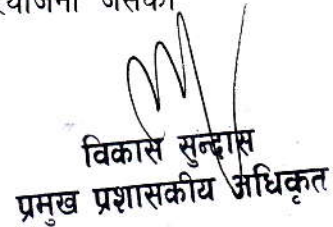 जसको
विकास सुन्दास
प्रमुख प्रशासकीय अधिकृत